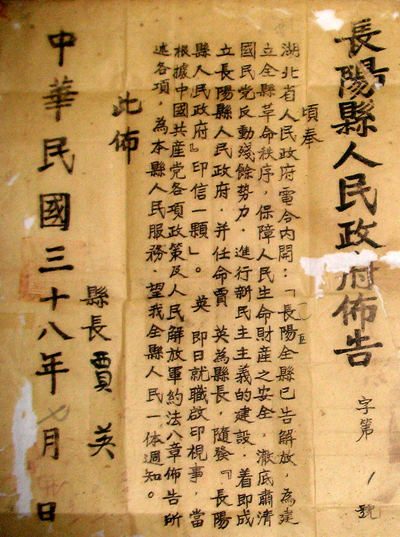 長陽縣人民政府佈告
字第 1 號
頃奉
湖北省人民政府電令內開：『長陽全縣已告解放，為建
立全縣革命秩序，保障人民生命財產之安全，澈底肅清
國民党反動殘餘勢力，進行新民主主義的建設，着即成
立長陽縣人民政府，并任命賈 英為縣長，隨發『長陽
縣人民政府』印信一顆』。英 即日就職啟印視事，當
根據中國共產党各項政策及人民解放軍約法八章佈告所
述各項，為本縣人民服務，望我全縣人民一体週知。
此佈
縣長 賈 英
中華民國三十八年七月 日